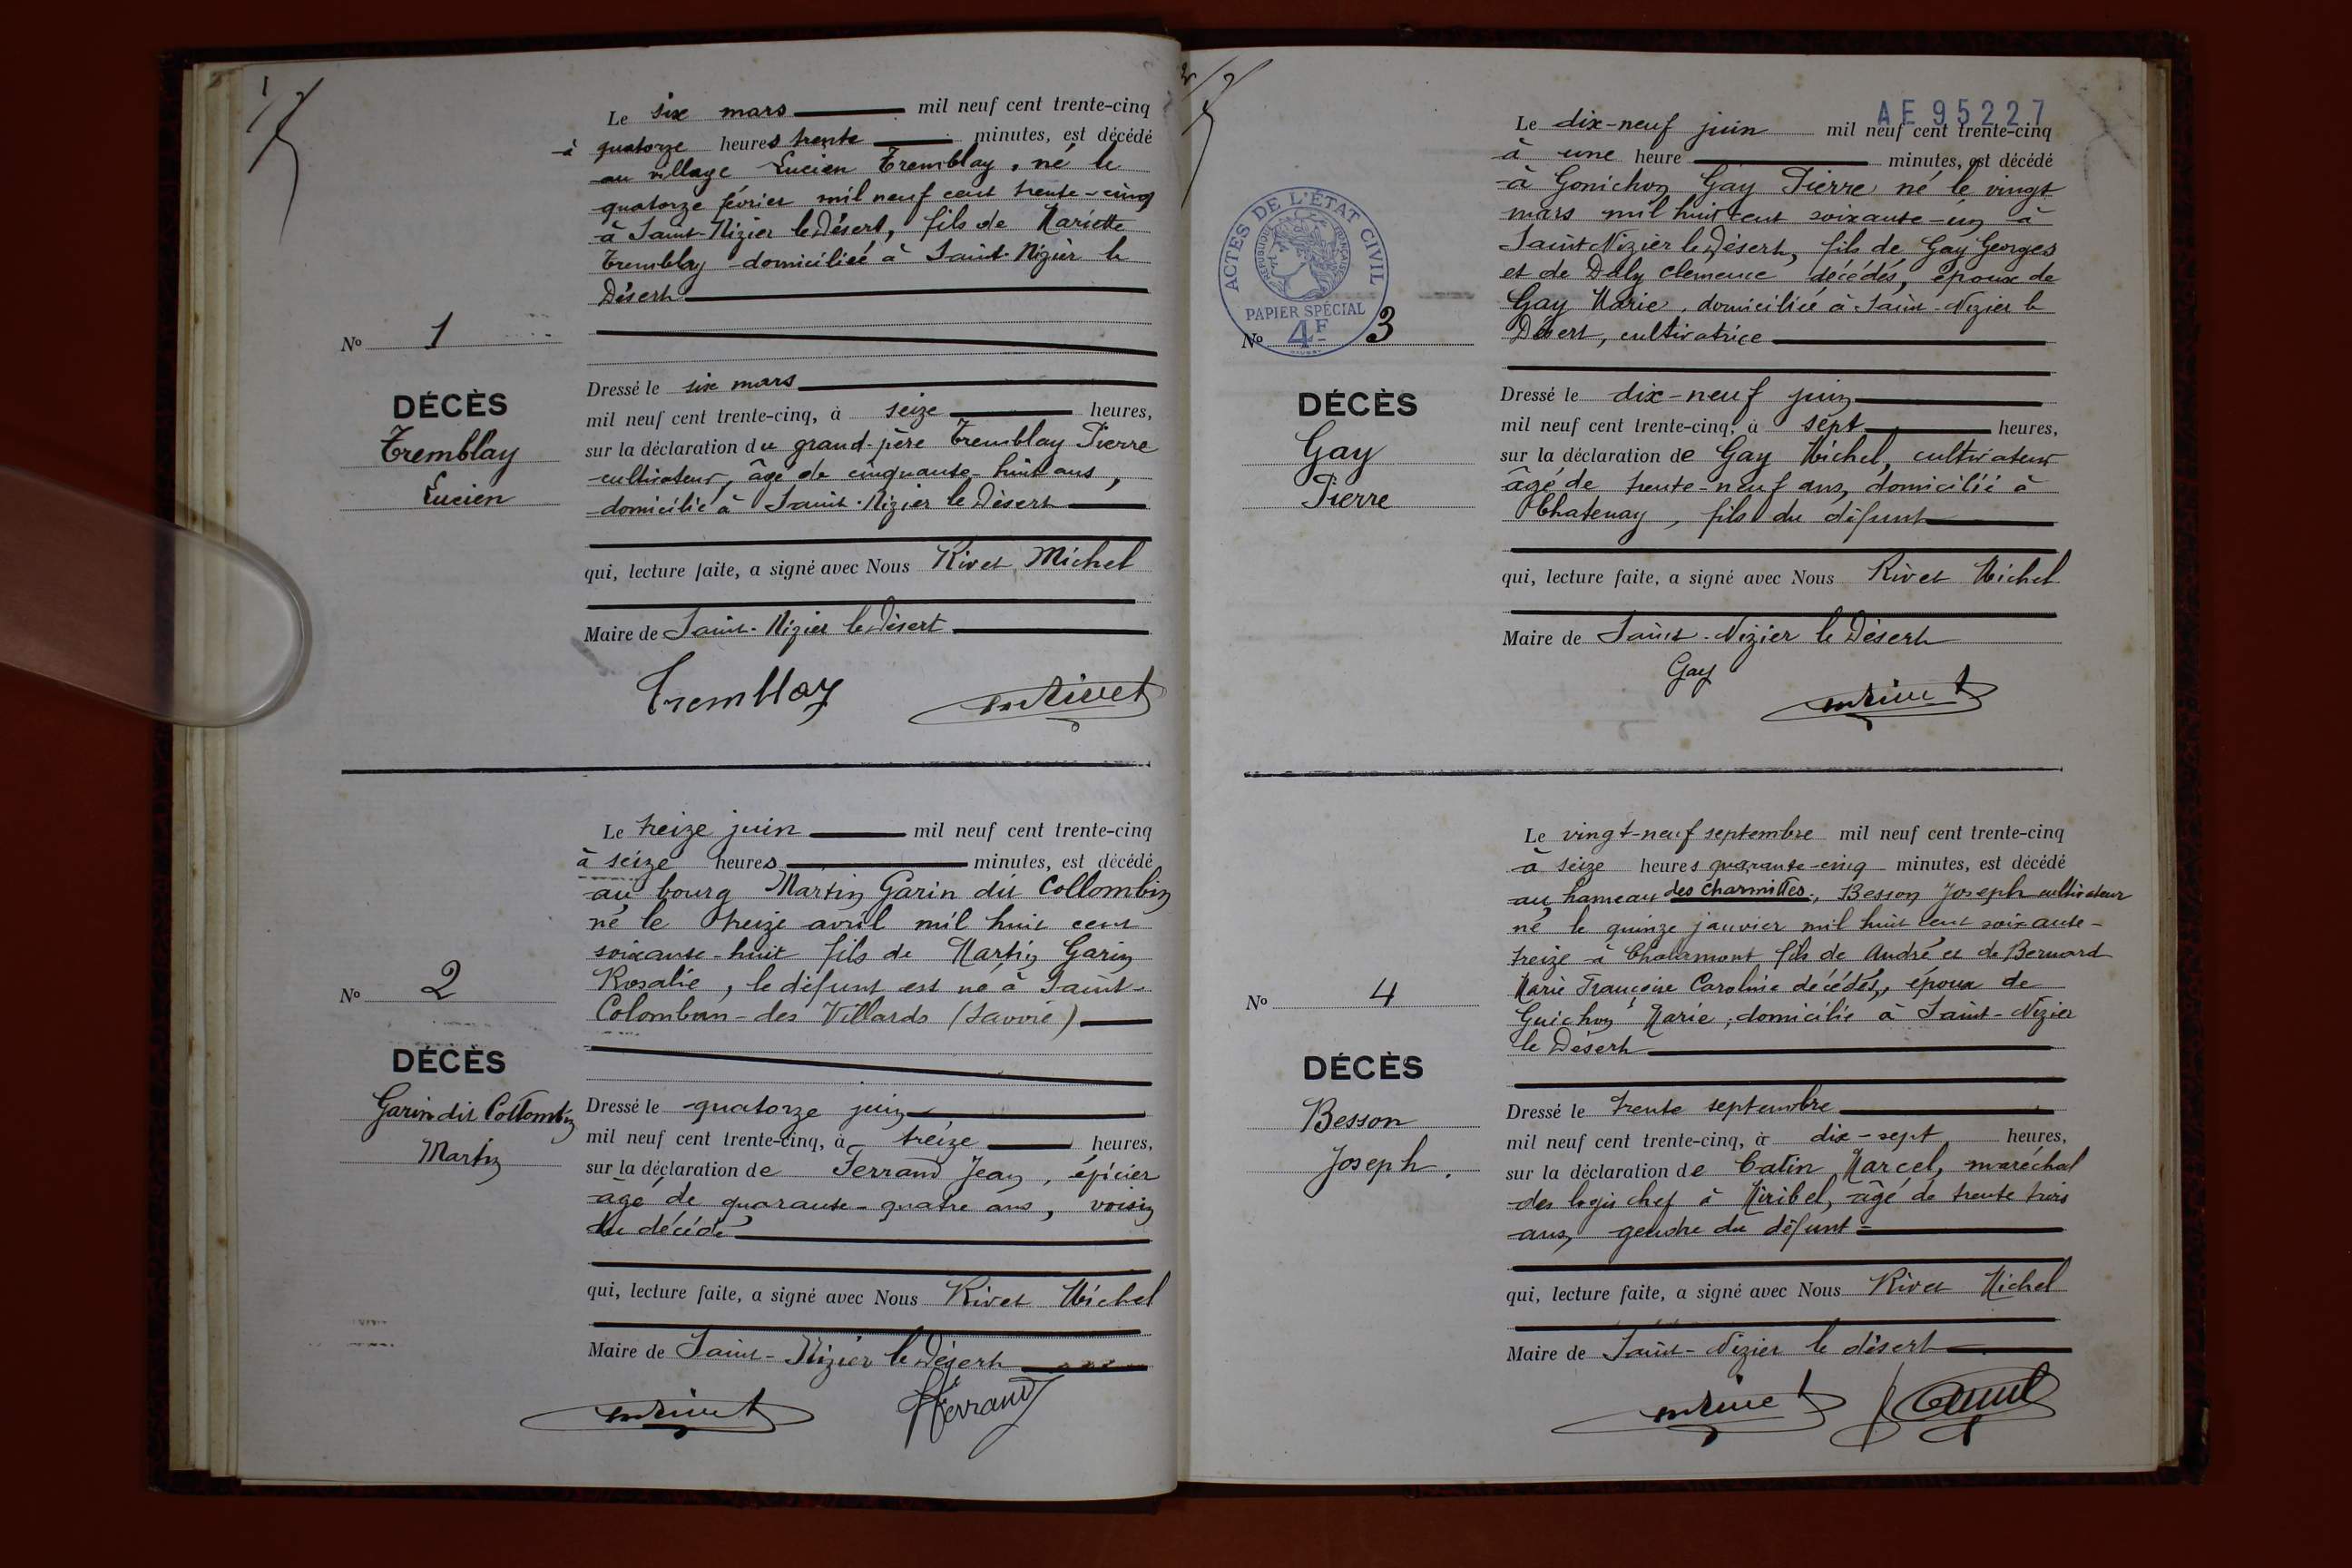 1
Le six mars mil neuf cent trente-cinq
à quatorze heures trente minutes, est décédé
au village Lucien Tremblay, né le
quatorze février mil neuf cent trente-cinq
à Saint-Nizier le Désert, fils de Mariette
Tremblay domiciliée à Saint-Nizier le
Désert
No 1
DÉCÈS
Tremblay
Lucien
Dressé le six mars
mil neuf cent trente-cinq, à seize heures,
sur la déclaration du grand-père Tremblay Pierre
cultivateur, âgé de cinquante-huit ans,
domicilié à Saint-Nizier le Désert
qui, lecture faite, a signé avec Nous Rivet Michel
Maire de Saint-Nizier le Désert
Tremblay mrivet
Le treize juin mil neuf cent trente-cinq
à seize heures minutes, est décédé
au bourg Martin Garin dit Collombin
né le treize avril mil huit cent
soixante-huit fils de Martin Garin
Rosalie, le défunt est né à Saint-
Colomban-des Villards (Savoie)
No 2
DÉCÈS
Garin dit Collombin
Martin
Dressé le quatorze juin
mil neuf cent trente-cinq, à treize heures,
sur la déclaration de Ferrand Jean, épicier
âgé de quarante-quatre ans, voisin
du décédé
qui, lecture faite, a signé avec Nous Rivet Michel
Maire de Saint-Nizier le Désert
mrivet Ferrand
2
AE95227
Le dix-neuf juin mil neuf cent trente-cinq
à une heure minutes, est décédé
à Gonichon Gay Pierre né le vingt
mars mil huit cent soixante-un à
Saint Nizier le Désert, fils de Gay Georges
et de Daly Clemence décédés, époux de
Gay Marie, domiciliée à Saint-Nizier le
Désert, cultivatrice
ACTES DE L'ÉTAT CIVIL
RÉPUBLIQUE FRANÇAISE
PAPIER SPÉCIAL
4F
No 3
DÉCÈS
Gay
Pierre
Dressé le dix-neuf juin
mil neuf cent trente-cinq, à sept heures,
sur la déclaration de Gay Michel, cultivateur
âgé de trente-neuf ans, domicilié à
Chatenay, fils du défunt
qui, lecture faite, a signé avec Nous Rivet Michel
Maire de Saint-Nizier le Désert
Gay
mrivet
Le vingt-neuf septembre mil neuf cent trente-cinq
à seize heures quarante-cinq minutes, est décédé
au hameau des Charmittes, Besson Joseph cultivateur
né le quinze janvier mil huit cent soixante-
treize à Chalamont fils de André et de Bernard
Marie Françoise Caroline décédés, époux de
Guichon Marie, domicilié à Saint-Nizier
le Désert
No 4
DÉCÈS
Besson
Joseph.
Dressé le trente septembre
mil neuf cent trente-cinq, à dix-sept heures,
sur la déclaration de Catin Marcel, maréchal
des logis chef à Miribel, âgé de trente trois
ans, gendre du défunt
qui, lecture faite, a signé avec Nous Rivet Michel
Maire de Saint-Nizier le désert
mrivet